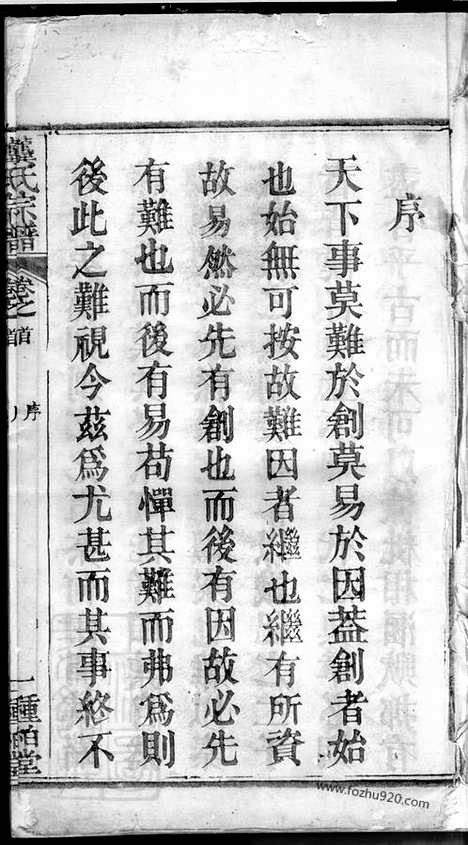 序
天下事莫難於創莫易於因蓋創者始
也始無可按故難因者繼也繼有所資
故易然必先有創也而後有因故必先
有難也而後有易苟憚其難而弗爲則
後此之難視今茲爲尤甚而其事終不
龔氏宗譜
卷之首
首
序
一
種栢堂
www.fozhu920.com